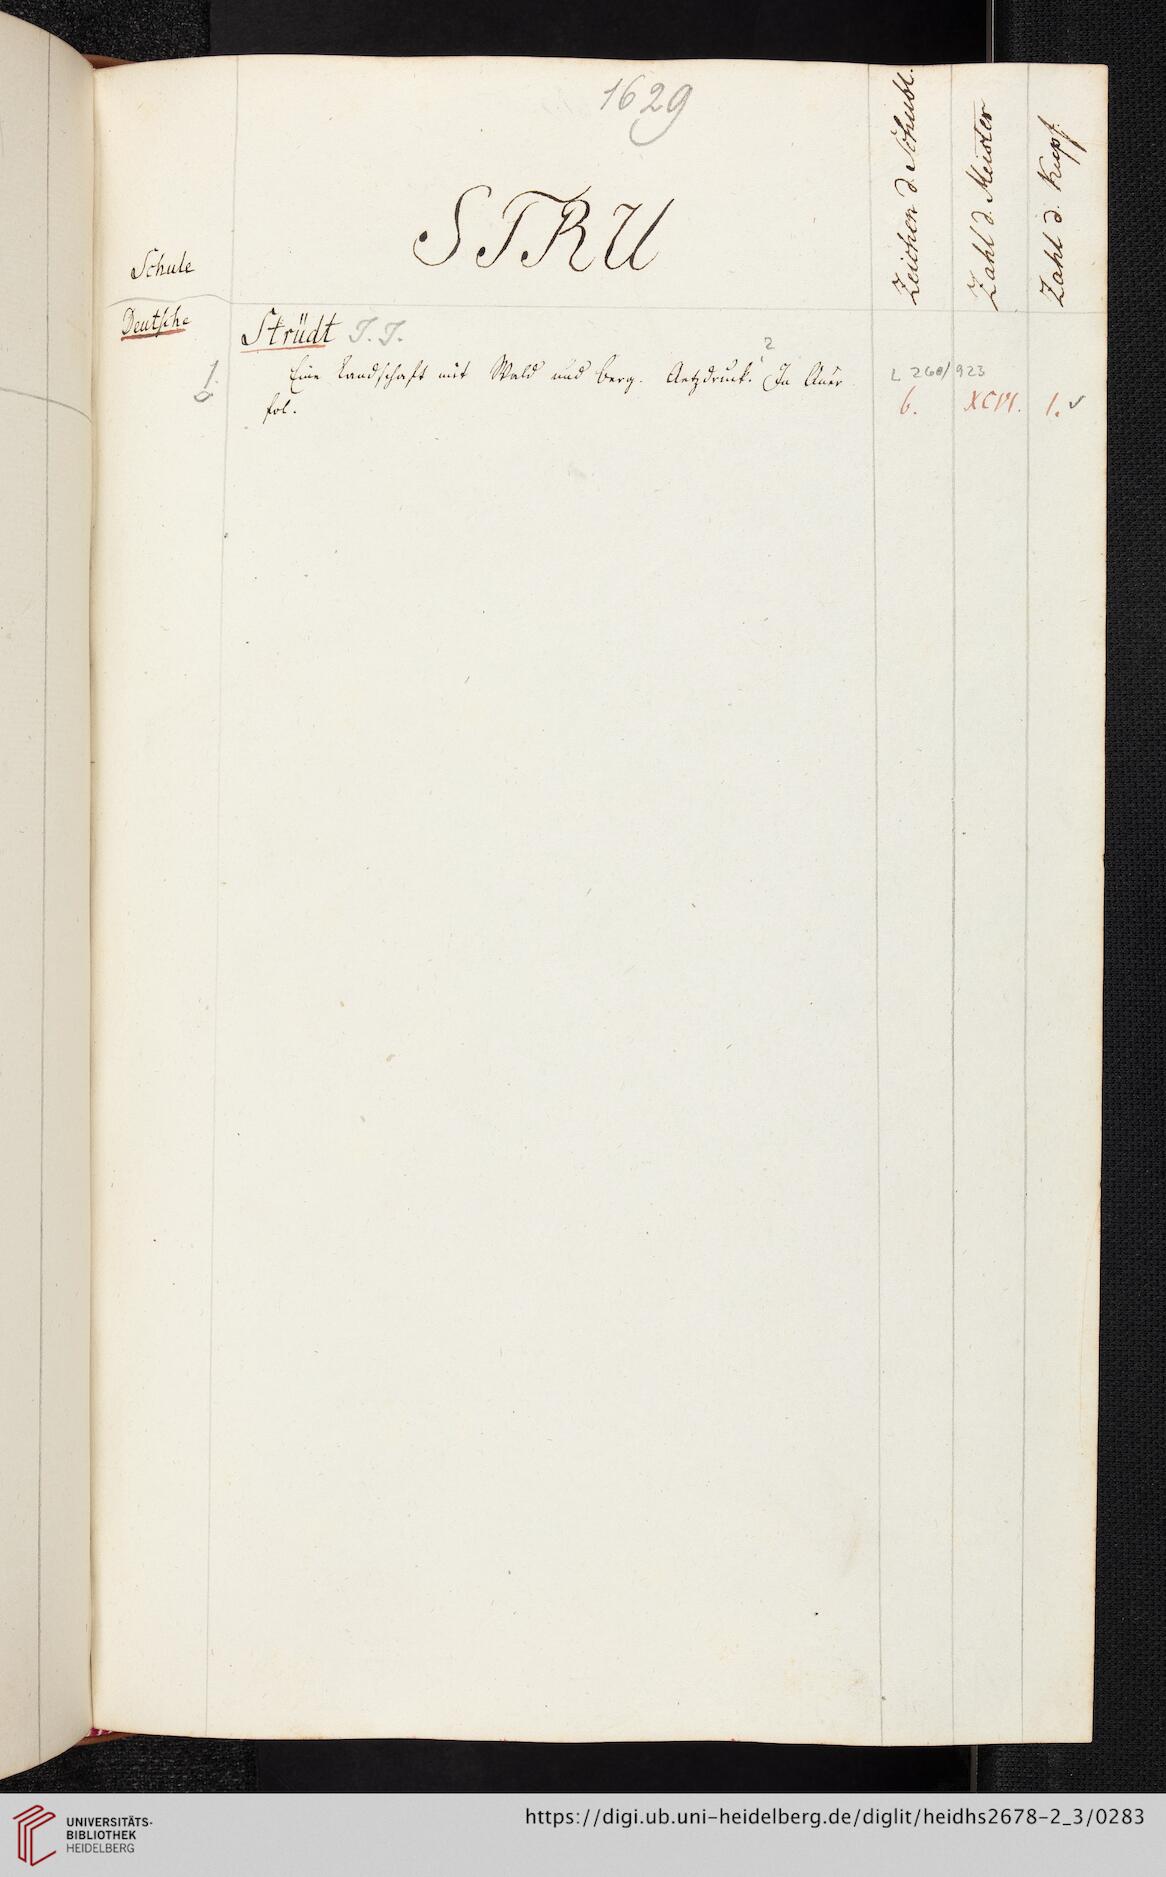 1629
STRU
Schule
Zeichen d. Schubl.
Zahl d. Meister
Zahl d. Kupf.
Deutsche
Strüdt J. J.
2
1. Eine Landschaft mit Wald und Berg. Aetzdruck. In Quer
L 260/923
fol.
6. XCVI. 1. ✓
https://digi.ub.uni-heidelberg.de/diglit/heidhs2678-2_3/0283
UNIVERSITÄTS-
BIBLIOTHEK
HEIDELBERG